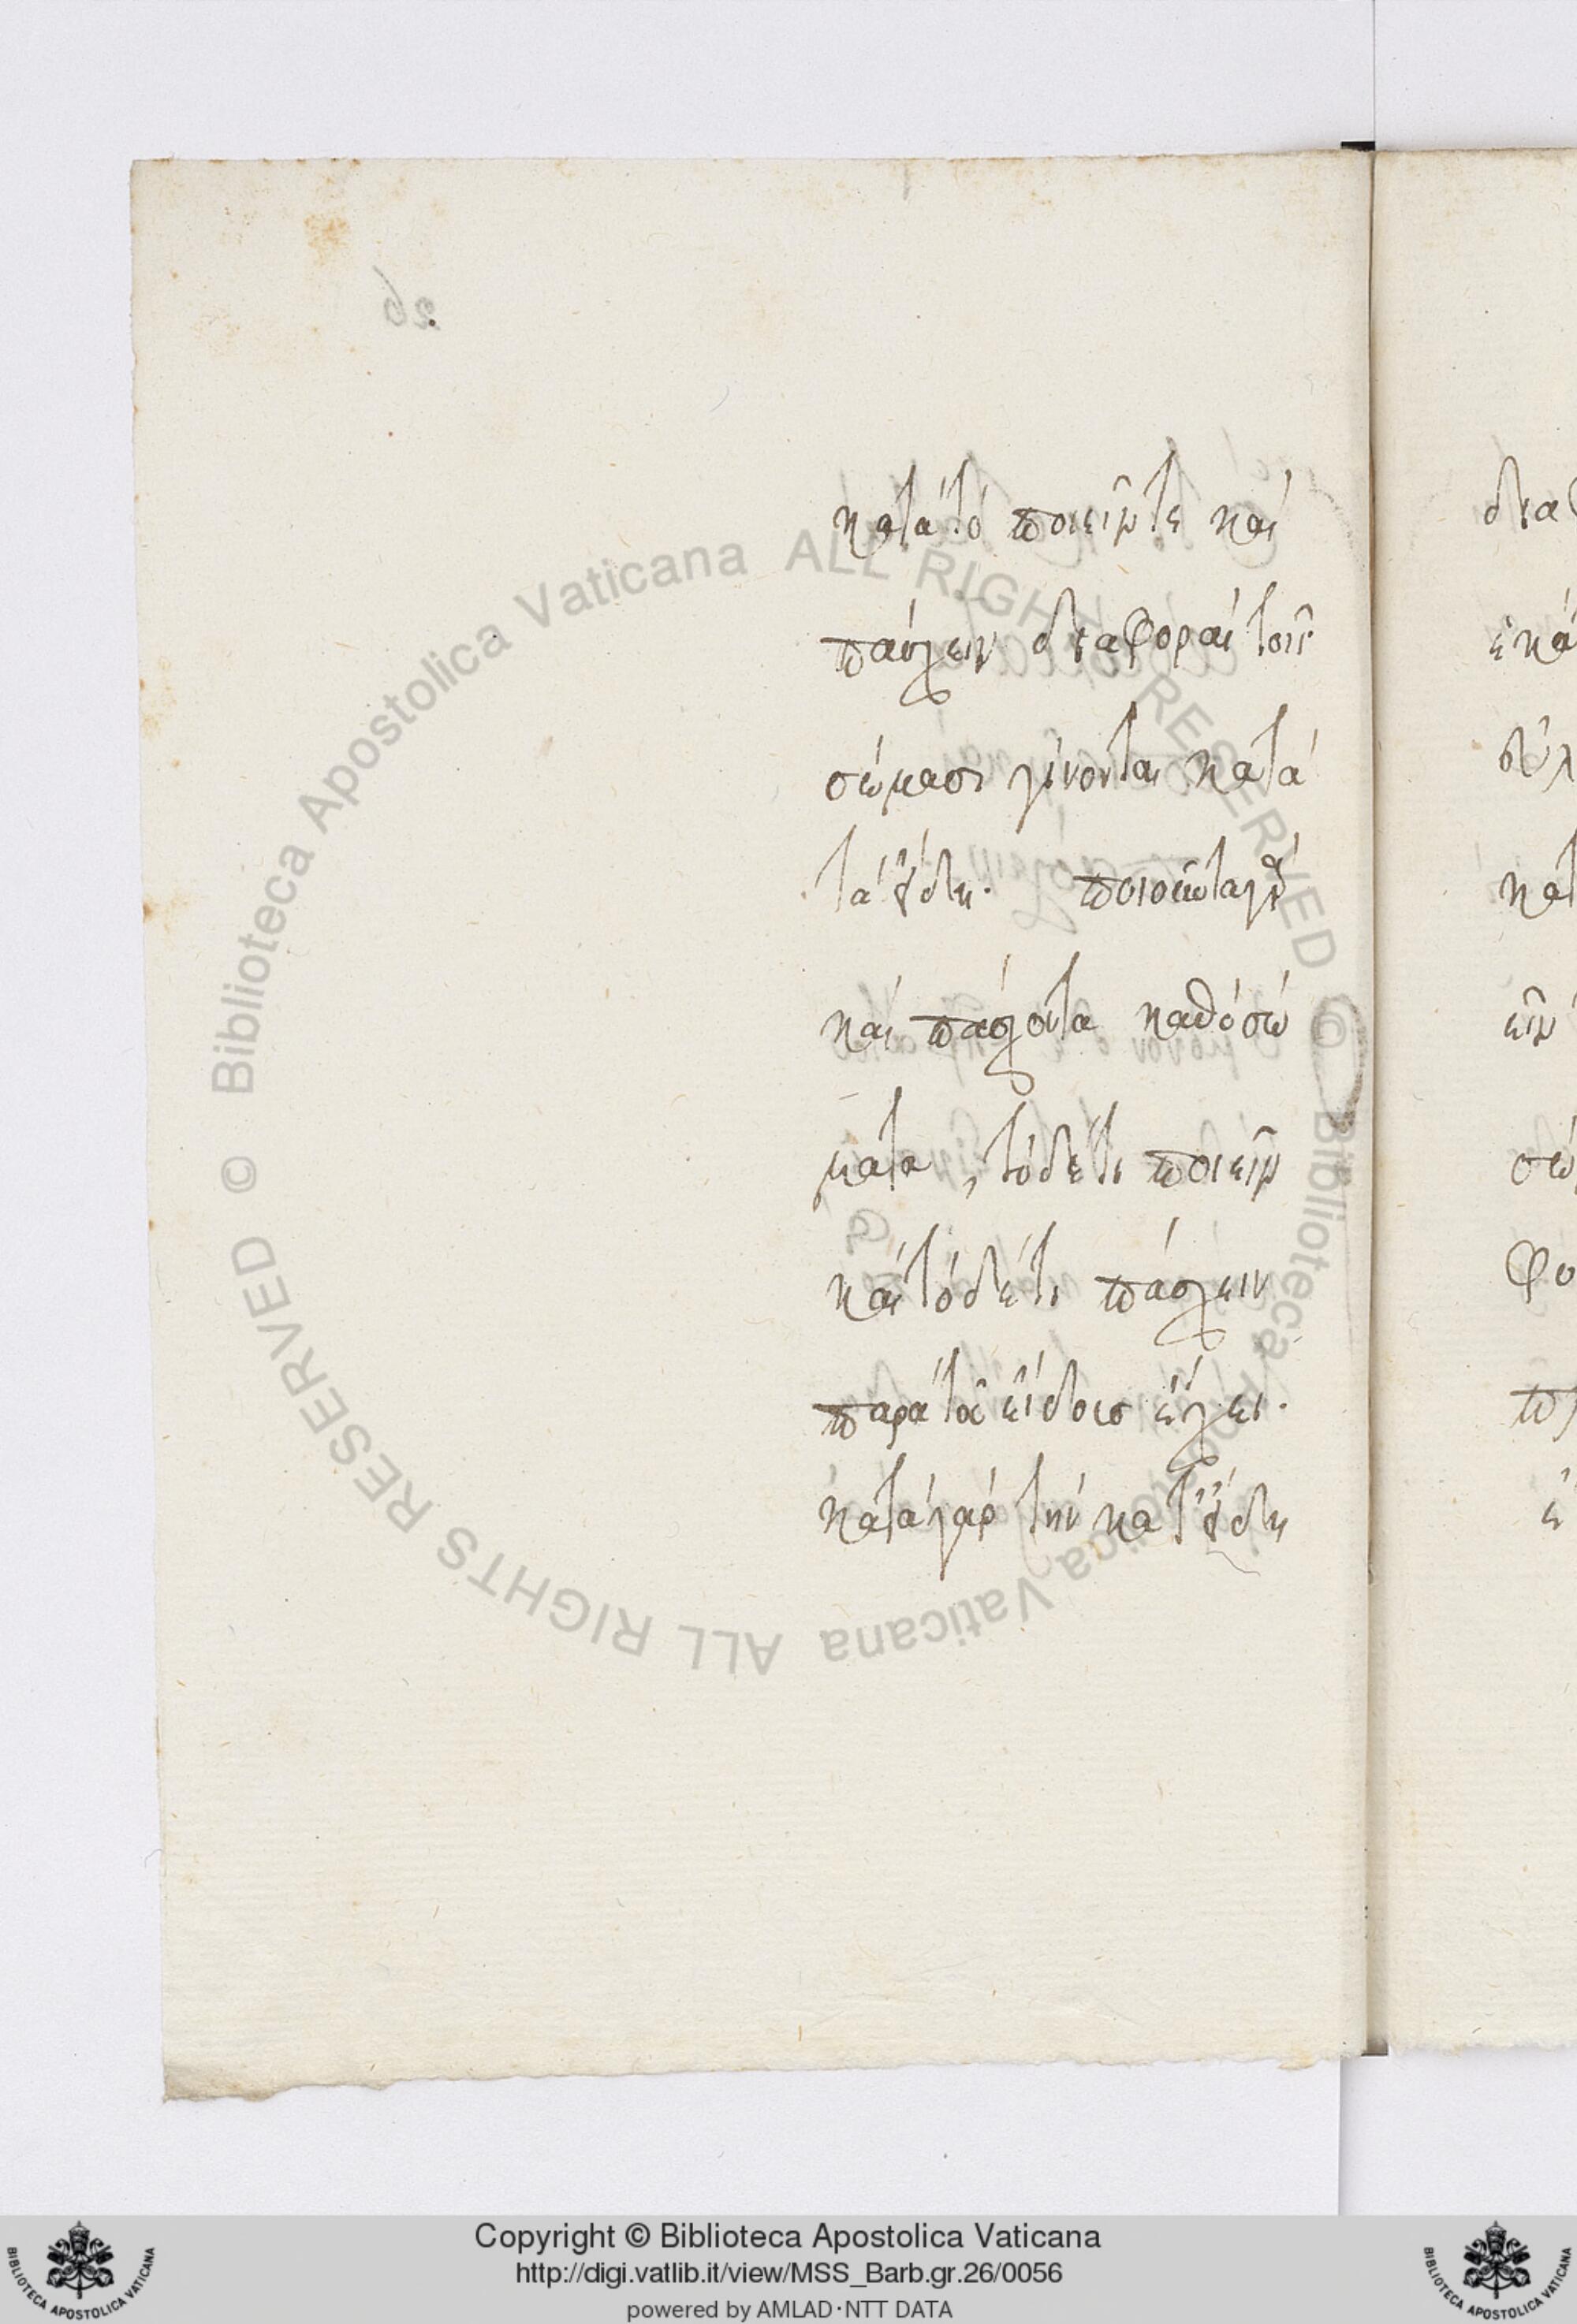 κατὰ τὸ ποιεῖν τε καὶ
πάσχειν διαφοραὶ τοῖς
σώμασι γίνονται κατὰ
τὰ εἴδη. ποιοῦντα
καὶ πάσχοντα καθὸ σώ
ματα, τὸ δέ τι ποιεῖν
καὶ τὸ δέ τι πάσχειν
παρὰ τοῦ εἴδους ἔχει.
κατὰ γὰρ τὴν κατ' εἴδη
δια
ἑκά
κατ
εῖν
σώ
Φο
26
Biblioteca Apostolica Vaticana ALL RIGHTS RESERVED ©
Biblioteca Apostolica Vaticana ALL RIGHTS RESERVED ©
Copyright © Biblioteca Apostolica Vaticana
http://digi.vatlib.it/view/MSS_Barb.gr.26/0056
powered by AMLAD·NTT DATA
BIBLIOTECA APOSTOLICA VATICANA
BIBLIOTECA APOSTOLICA VATICANA